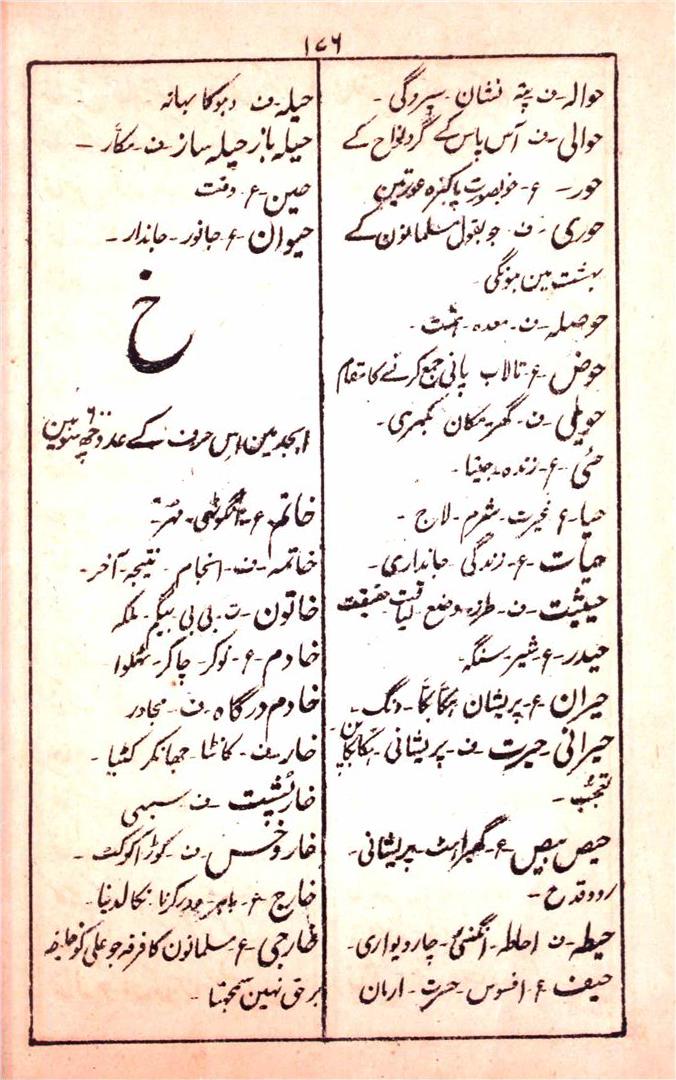 ۱۷۶
حوالہ۔ ف پتہ نشان۔ سپردگی۔
حوالی۔ ف آس پاس کے گرد نواح کے
حور۔ ع۔ خوبصورت پاکیزہ عورتین
حوری۔ ف جو بقول مسلمانون کے
بہشت مین ہونگی۔
حوصلہ۔ ف۔ معدہ۔ ہمت۔
حوض۔ ع۔ تالاب پانی جمع کرنے کا مقام
حویلی۔ ف۔ گھر۔ مکان کمہری۔
حی۔ ع۔ زندہ۔ جیتا۔
حیا۔ ع غیرت۔ شرم۔ لاج۔
حیات۔ ع۔ زندگی جانداری۔
حیثیت۔ ف۔ طرز۔ وضع لیاقت حقیقت
حیدر۔ ع۔ شیر۔ سنگہ۔
حیران۔ ع۔ پریشان ہکّا بکّا۔ دنگ۔
حیرانی۔ حیرت ف۔ پریشانی۔ ہکابکاپن۔
تعجّب۔
حیص بیص۔ ع۔ گھبراہٹ۔ پریشانی۔
ردو قدح۔
حیطہ۔ ف احاطہ۔ انگنئی۔ چار دیواری۔
حیف۔ ع افسوس۔ حسرت۔ ارمان
حیلہ۔ ف دہوکا بہانہ
حیلہ باز حیلہ ساز۔ ف۔ مکّار۔
حین۔ ع۔ وقت
حیوان۔ ع۔ جانور۔ جاندار۔
خ
ابجد مین اس حرف کے عدد ۶۰۰ چھ سو ہین
خاتم۔ ع۔ انگوٹھی۔ مہر۔
خاتمہ۔ ف۔ انجام۔ نتیجہ۔ آخر۔
خاتون۔ ت۔ بی بی بیگم۔ ملکہ
خادم۔ ع۔ نوکر۔ چاکر۔ ٹہلوا
خادم درگاہ۔ ف۔ مجاور
خار۔ ف۔ کانٹا۔ جھانکر کٹیا۔
خارپشت۔ ف۔ سیہی
خار و خس۔ ف۔ کوڑا کوکٹ۔
خارج۔ ع۔ باہر۔ دور کرنا۔ نکالدینا۔
خارجی۔ ع۔ مسلمانون کا فرقہ جو علی کو خلیفہ
برحق نہین سمجہتا۔